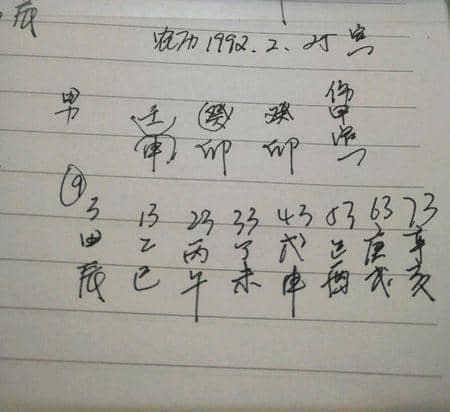 辰
农历1992.2.25 寅
男 壬 癸 癸 伤甲寅
申 卯 卯
3 13 23 33 43 53 63 73
甲 乙 丙 丁 戊 己 庚 辛
辰 巳 午 未 申 酉 戌 亥